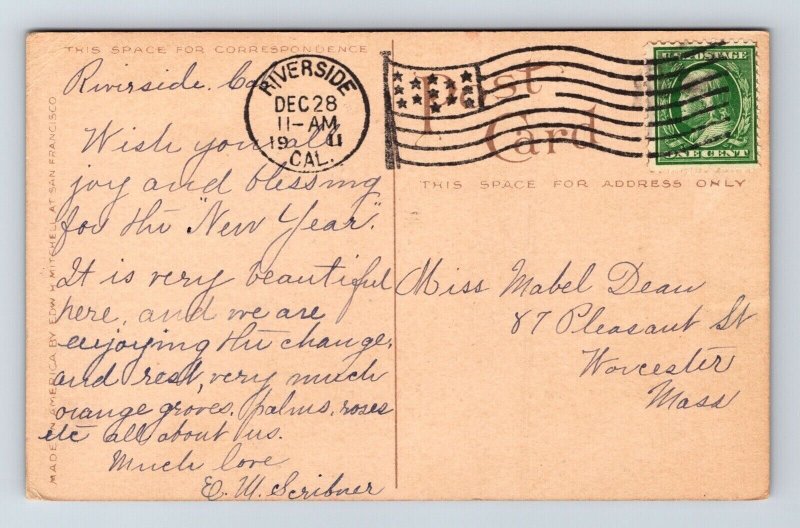 THIS SPACE FOR CORRESPONDENCE
Riverside. Cal
Wish you all
joy and blessing
for the "New Year".
It is very beautiful
here, and we are
enjoying the change,
and rest, very much
orange groves, palms, roses
etc all about us.
Much love
E. W. Scribner
MADE IN AMERICA BY EDW H. MITCHELL AT SAN FRANCISCO
RIVERSIDE
DEC 28
11-AM
1911
CAL.
Post
Card
U.S. POSTAGE
ONE CENT
THIS SPACE FOR ADDRESS ONLY
Miss Mabel Dean
87 Pleasant St
Worcester
Mass